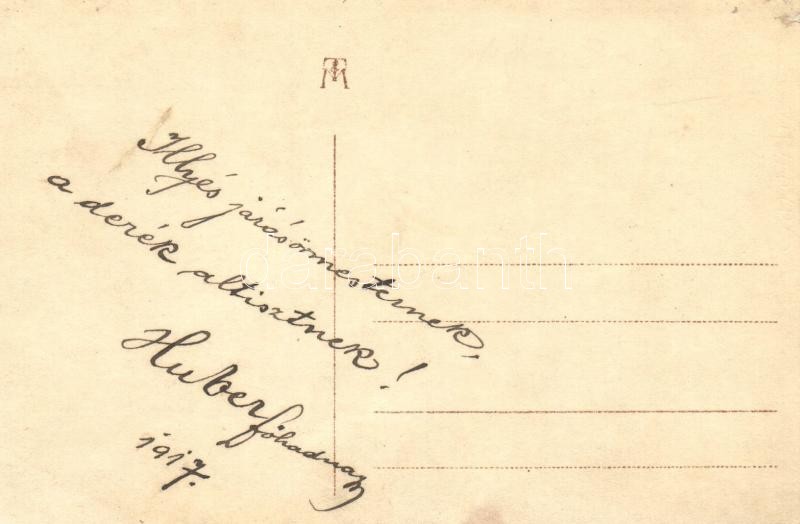 Illyés járásőrmesternek,
a derék altisztnek!
Huber főhadnagy
1917.
darabanth